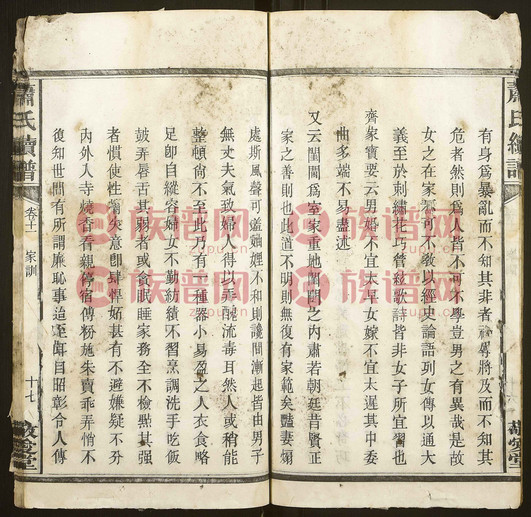 蕭氏續譜
有身爲暴亂而不知其非者禍辱將及而不知其
危者然則爲人皆不可不學豈男之有異哉是故
女之在家不可不敎以經史論語列女傳以通大
義至於刺繡花巧管絃歌詩皆非女子所宜習也
齊家寶要云男婚不宜太早女嫁不宜太遲其中委
曲多端不易盡述
又云閨閫爲室家重地閨門之內肅若朝廷昔賢正
家之善則也此道不明則無復有家範矣豔妻煽
處斯風聲可羞妯娌不和則讒間漸起皆由男子
無丈夫氣致婦人得以乖醜流毒耳然人或稍能
整頓尙不至此乃有一種器小易盈之人衣食略
足卽自縱容婦女不勤紡績不習烹調洗手吃飯
鼓弄唇舌甚弱者或貪眠睡家務全不檢點其强
者慣使性氣失意卽肆悍妬甚有不避嫌疑不分
內外入寺燒香看親停宿傅粉施朱賣乖弄悄不
復知世間有所謂廉恥事迨至耳目昭彰令人傳
蕭氏續譜
卷十一
家訓
十七
敦堂
族谱网
zupu.cn